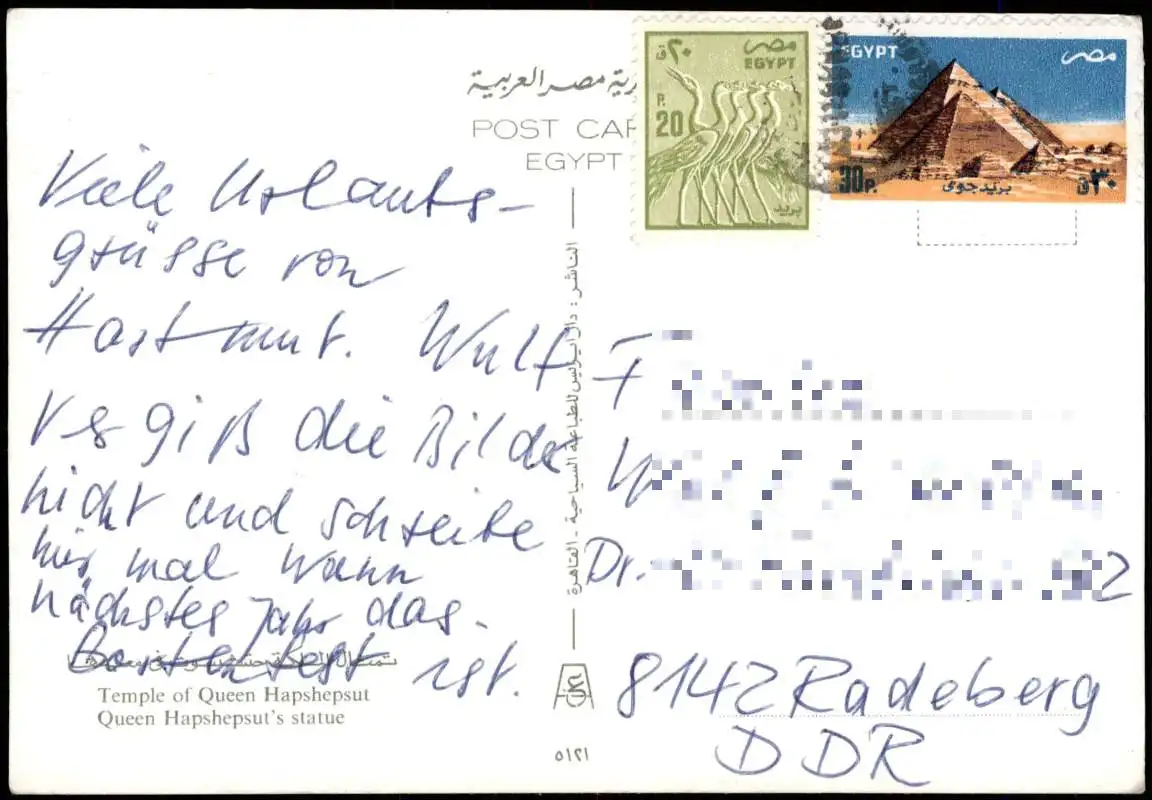 مصر
EGYPT
٢٠ ق
P.
20
بريد
EGYPT
مصر
30P.
بريد جوى
٣٠ ق
رية مصر العربية
POST CAR
EGYPT
Viele Urlaubs-
grüsse von
Hartmut. Wulf
Vergiß die Bilder
nicht und schreibe
mir mal wann
nächstes Jahr das
ist.
الناشر: دار للطباعة السياحية - القاهرة
F
W
Dr. 2
8142 Radeberg
DDR
Temple of Queen Hapshepsut
Queen Hapshepsut's statue
٥١٢١